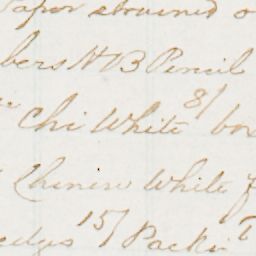 Vapor strained o
bers HB Pencil
Chi White 8/ bo
Chinese White f
15/ Packt